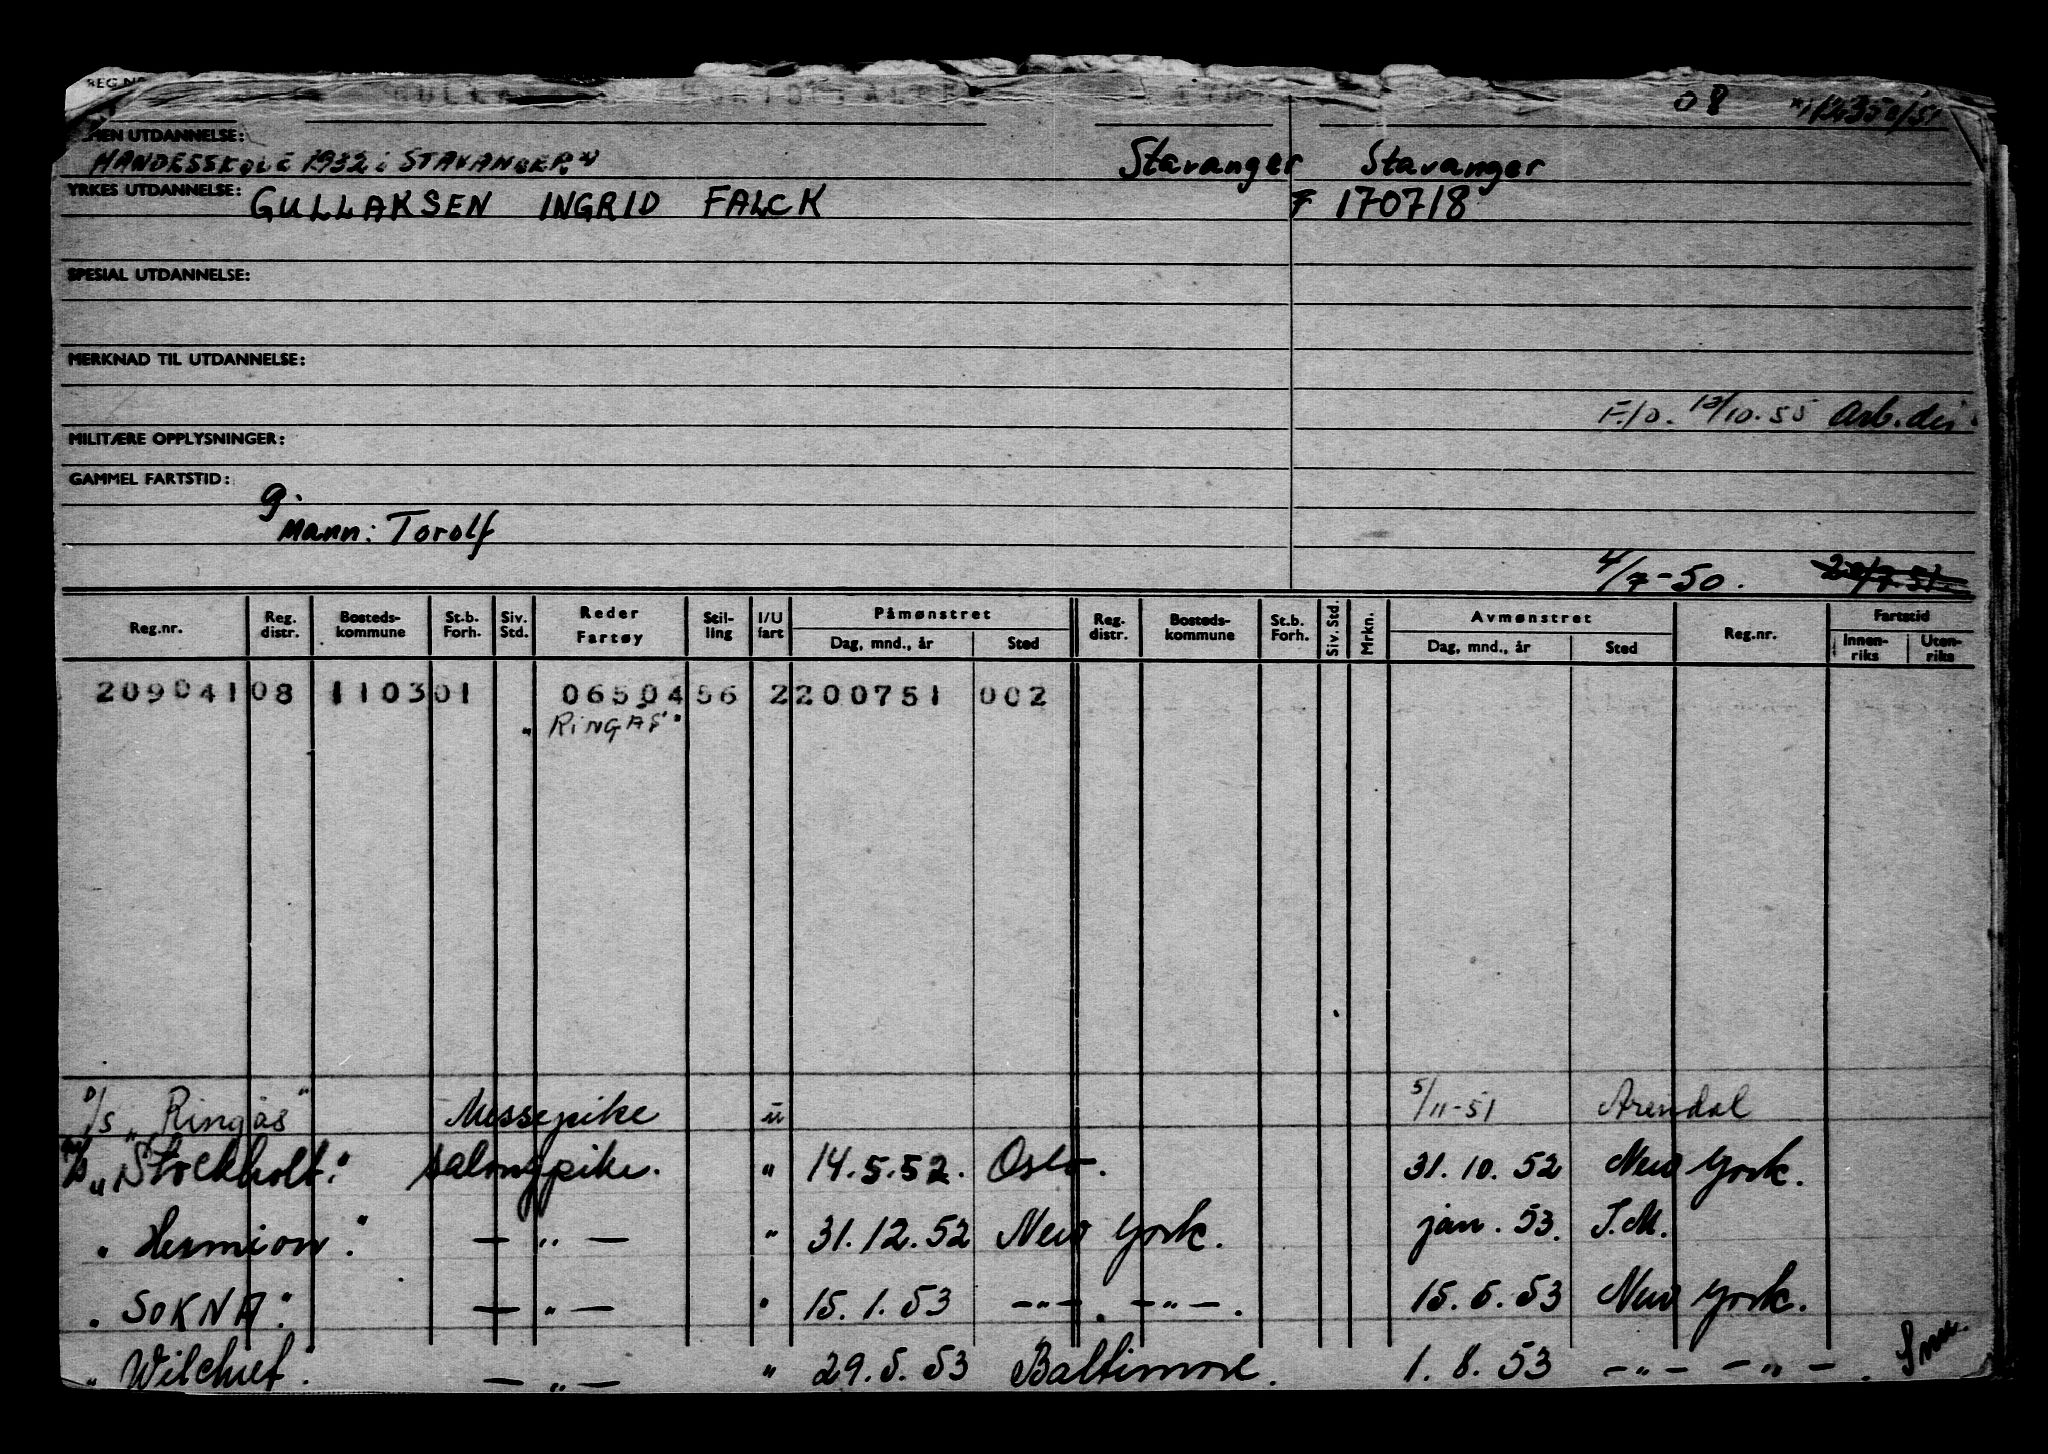 REG.NR
08 12350/51
MEN UTDANNELSE:
HANDESSKOLE 1932 i STAVANGER. Stavanger Stavanger
YRKES UTDANNELSE: GULLAKSEN INGRID FALCK F 170718
SPESIAL UTDANNELSE:
MERKNAD TIL UTDANNELSE:
F.10. 13/10.55 Arb.dir.
MILITÆRE OPPLYSNINGER:
GAMMEL FARTSTID:
g.
Mann: Torolf
4/7-50. 20/7.51.
Reg.nr. Reg. distr. Bosteds-kommune St.b. Forh. Siv. Std. Reder Fartøy Stil-ling I/U fart Påmønstret Dag, mnd., år Sted Reg. distr. Bosteds-kommune St.b. Forh. Siv. Std. Mrkn. Avmønstret Dag, mnd., år Sted Reg.nr. Fartstid Innen-riks Uten-riks
209041 08 1103 01 06504 56 2 200751 002
"RINGÅS"
D/S "Ringås" Messepike u 5/11-51 Arendal
"Stockholt." salongpike. " 14.5.52. Oslo. 31.10.52 New York.
"Hermion". — " — " 31.12.52 New York. jan. 53. S.M.
"SOKNA". — " — " 15.1.53 —"—. —"—. 15.5.53 New York.
"Wilchief". — " — " 29.5.53 Baltimore. 1.8.53 —"— —"—.